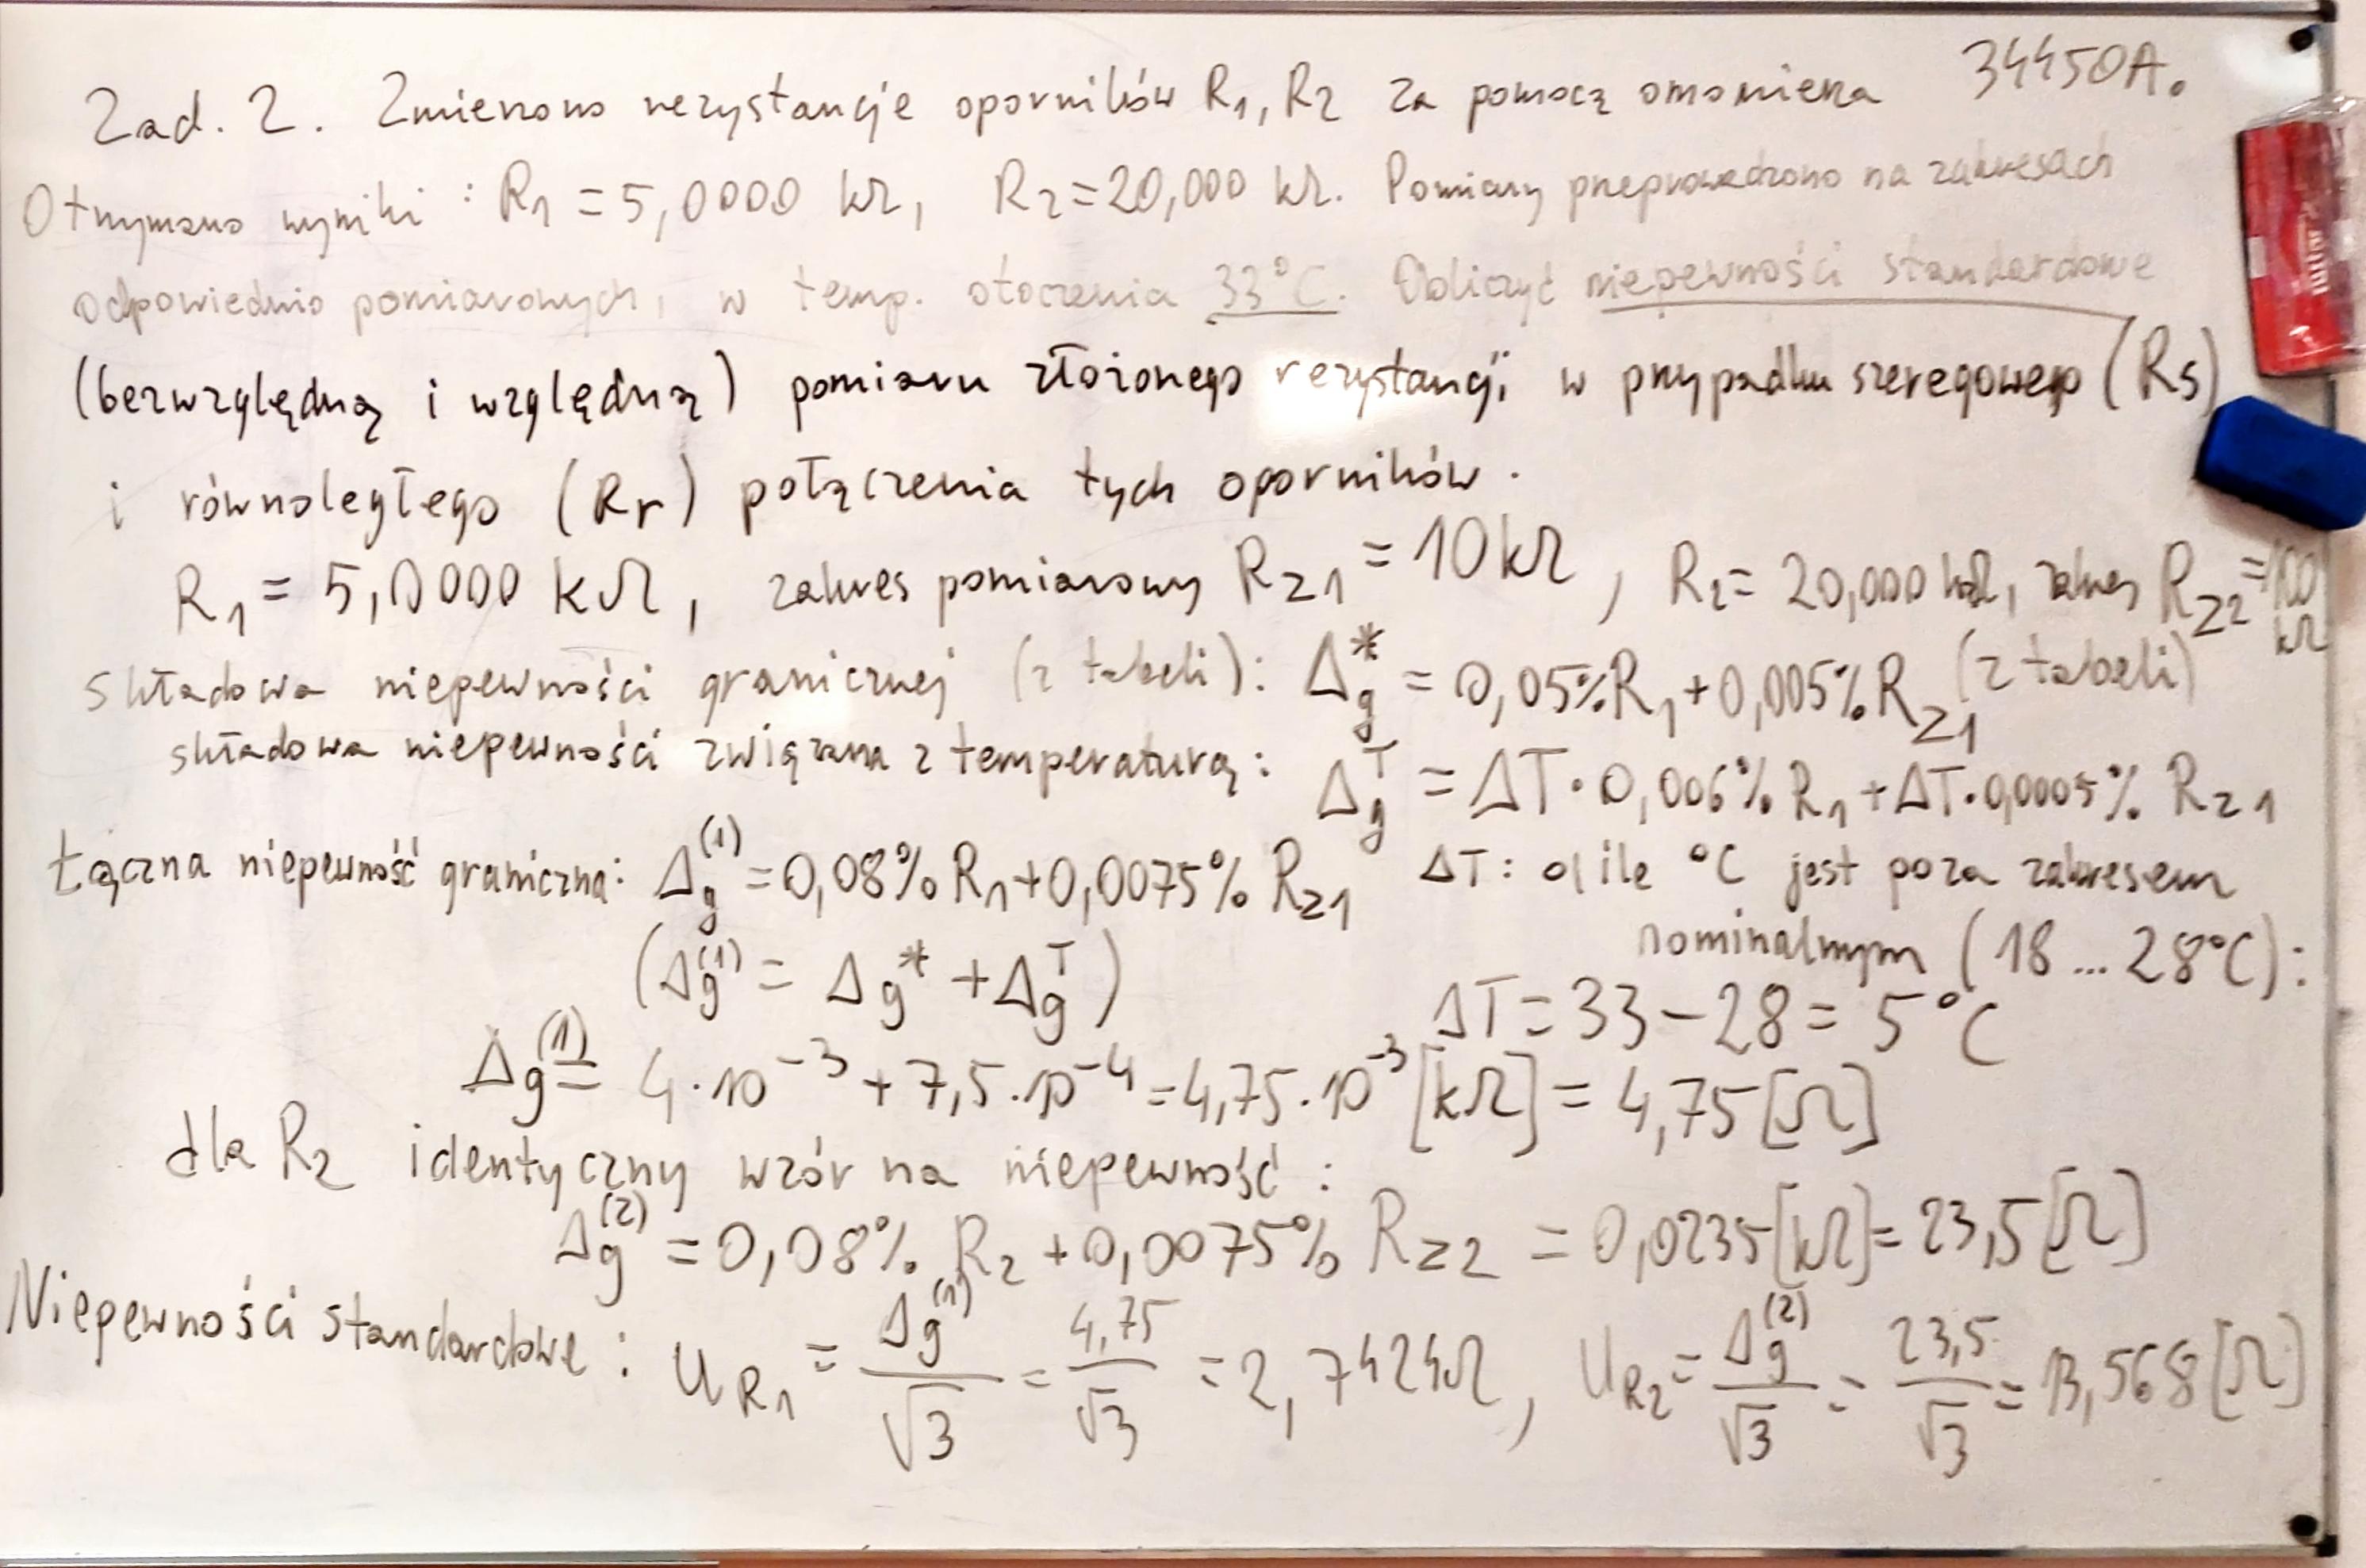 Zad. 2. Zmierzono rezystancje oporników R₁, R₂ za pomocą omomierza 34450A.
Otrzymano wyniki : R₁ = 5,0000 kΩ, R₂ = 20,000 kΩ. Pomiary przeprowadzono na zakresach
odpowiednio pomiarowych, w temp. otoczenia 33°C. Obliczyć niepewności standardowe
(bezwzględną i względną) pomiaru złożonego rezystancji w przypadku szeregowego (Rs)
i równoległego (Rr) połączenia tych oporników.
R₁ = 5,0000 kΩ, zakres pomiarowy R_Z1 = 10kΩ, R₂ = 20,000 kΩ, zakres R_Z2 = 100 kΩ
składowa niepewności granicznej (z tabeli): Δg* = 0,05%R₁ + 0,005%R_Z1 (z tabeli)
składowa niepewności związana z temperaturą: Δg^T = ΔT·0,006% R₁ + ΔT·0,0005% R_Z1
Łączna niepewność graniczna: Δg⁽¹⁾ = 0,08% R₁ + 0,0075% R_Z1 ΔT: o ile °C jest poza zakresem
nominalnym (18 ... 28°C):
(Δg⁽¹⁾ = Δg* + Δg^T)
ΔT = 33 − 28 = 5°C
Δg⁽¹⁾ = 4·10⁻³ + 7,5·10⁻⁴ = 4,75·10⁻³ [kΩ] = 4,75 [Ω]
dla R₂ identyczny wzór na niepewność :
Δg⁽²⁾ = 0,08% R₂ + 0,0075% R_Z2 = 0,0235 [kΩ] = 23,5 [Ω]
Niepewności standardowe : u_R1 = Δg⁽¹⁾/√3 = 4,75/√3 = 2,7424Ω, u_R2 = Δg⁽²⁾/√3 = 23,5/√3 = 13,568 [Ω]